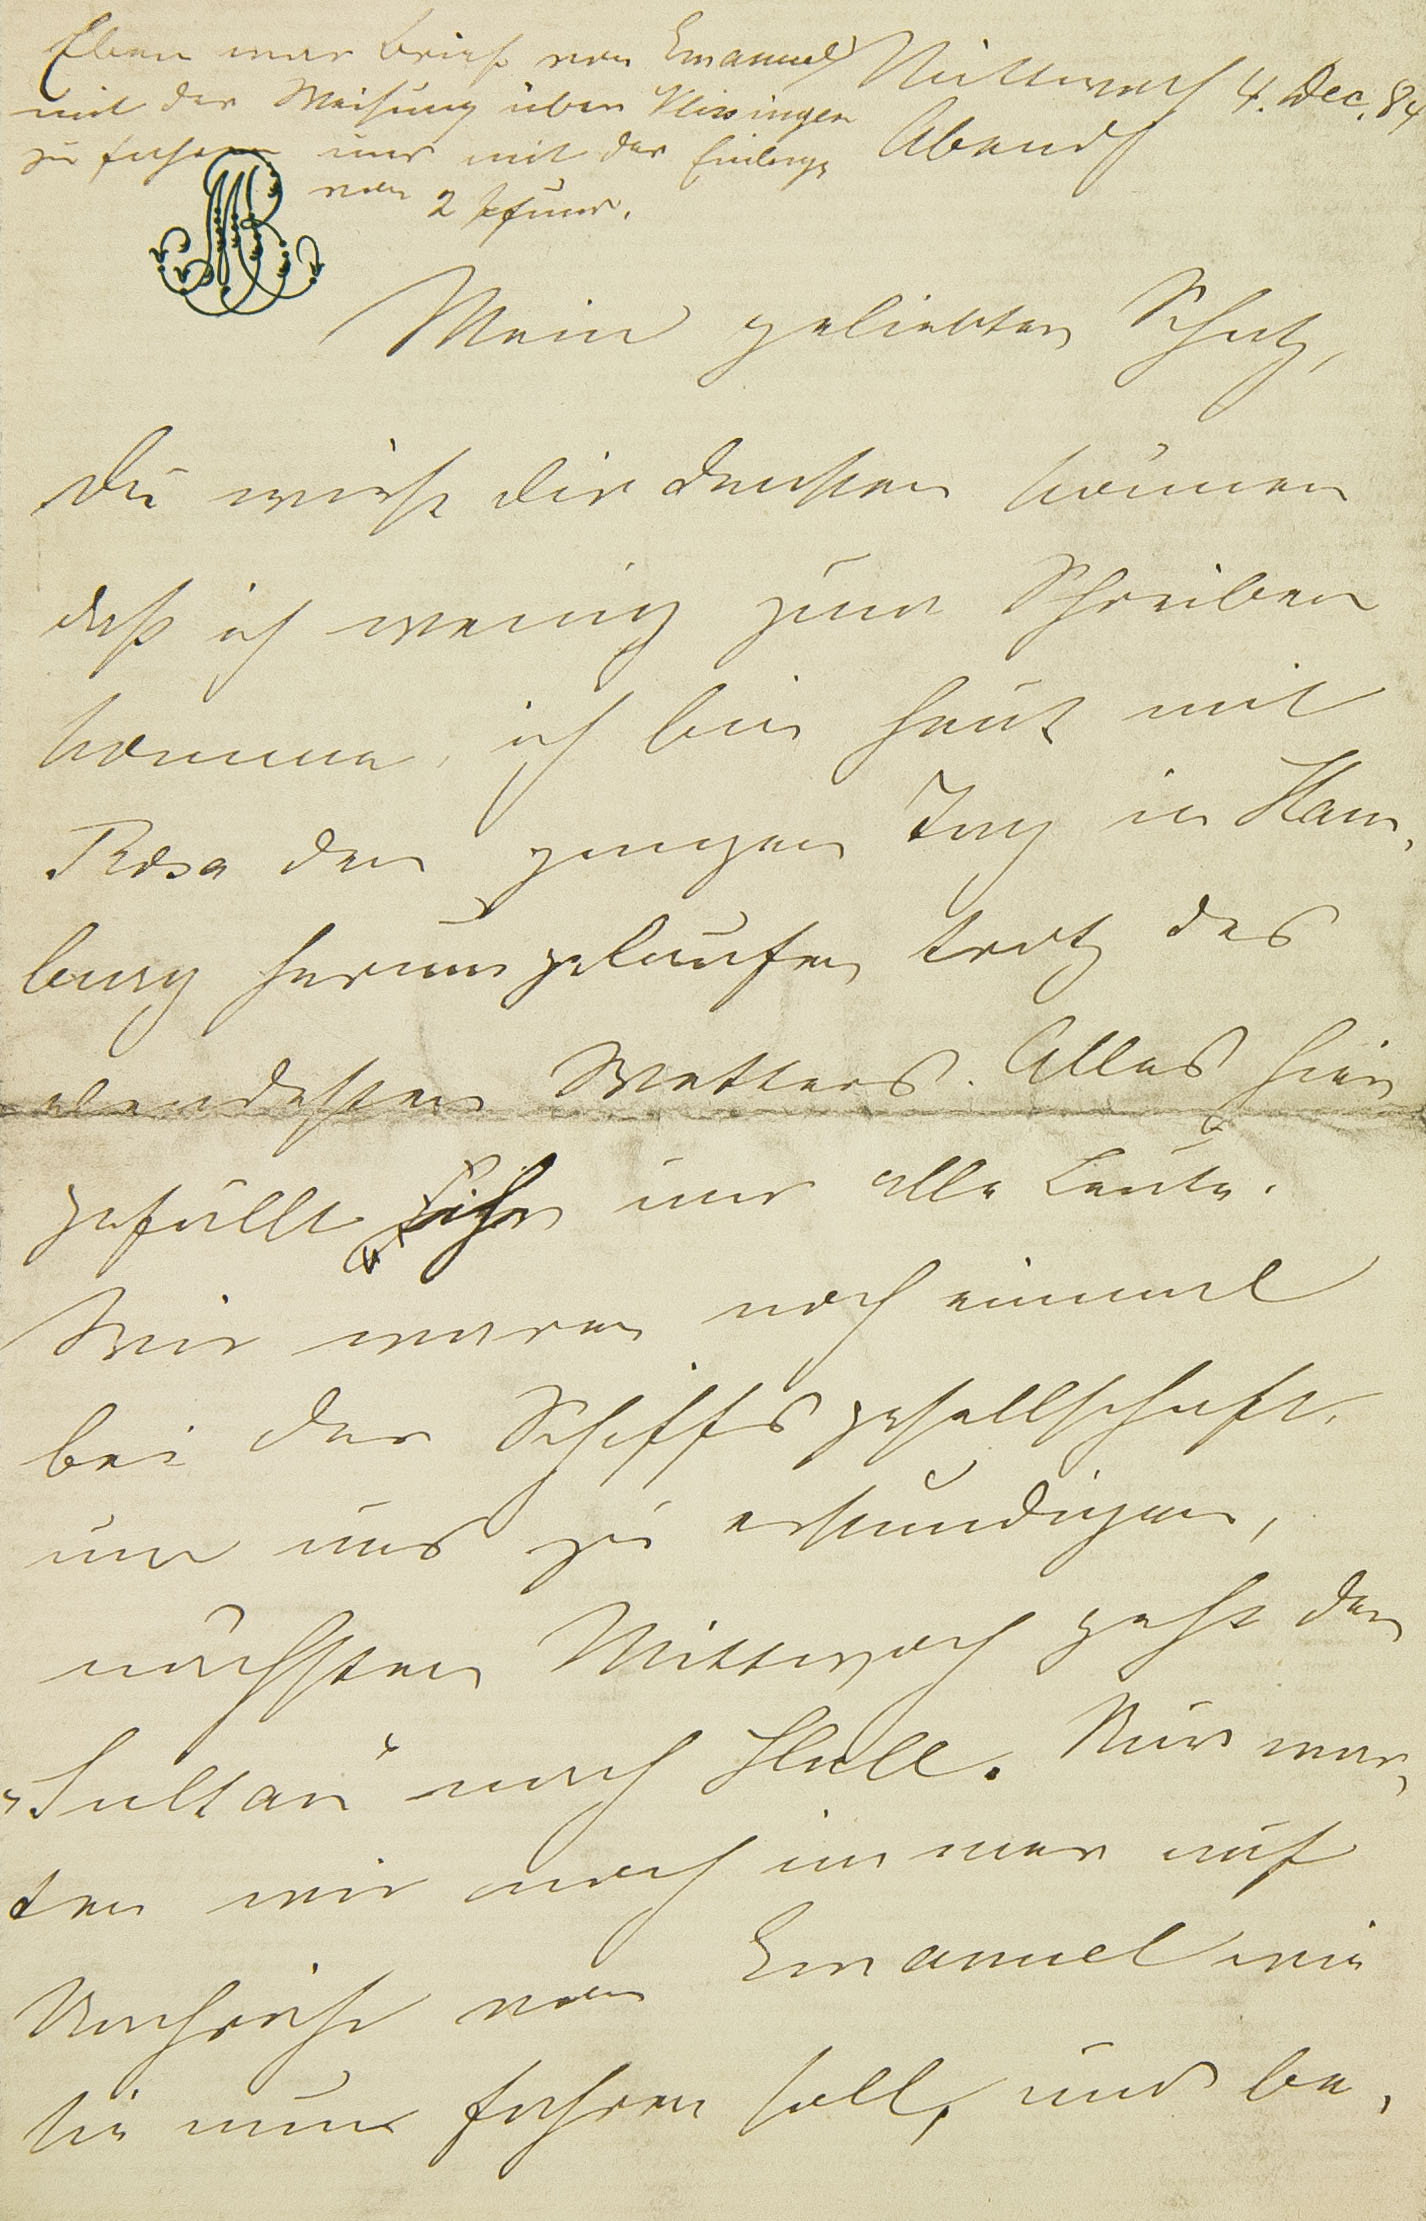 Eben war Brief von Emanuel
mit der Weisung über Vlissingen
zu fahren und mit der Einlage
von 2 Pfund.
Mittwoch 4. Dec. 84
Abends
MB
Mein geliebter Schatz,
Du wirst Dir denken können
daß ich wenig zum Schreiben
komme, ich bin heut mit
Rosa den ganzen Tag in Ham,
burg herumgelaufen trotz des
elendesten Wetters. Alles hier
gefällt ihr und alle Leute.
Wir waren noch einmal
bei der Schiffsgesellschaft,
um uns zu erkundigen,
nächsten Mittwoch geht der
„Sultan“ nach Hull. Nun war,
ten wir noch immer auf
Nachricht von Emanuel wie
sie nun fahren soll, und be,